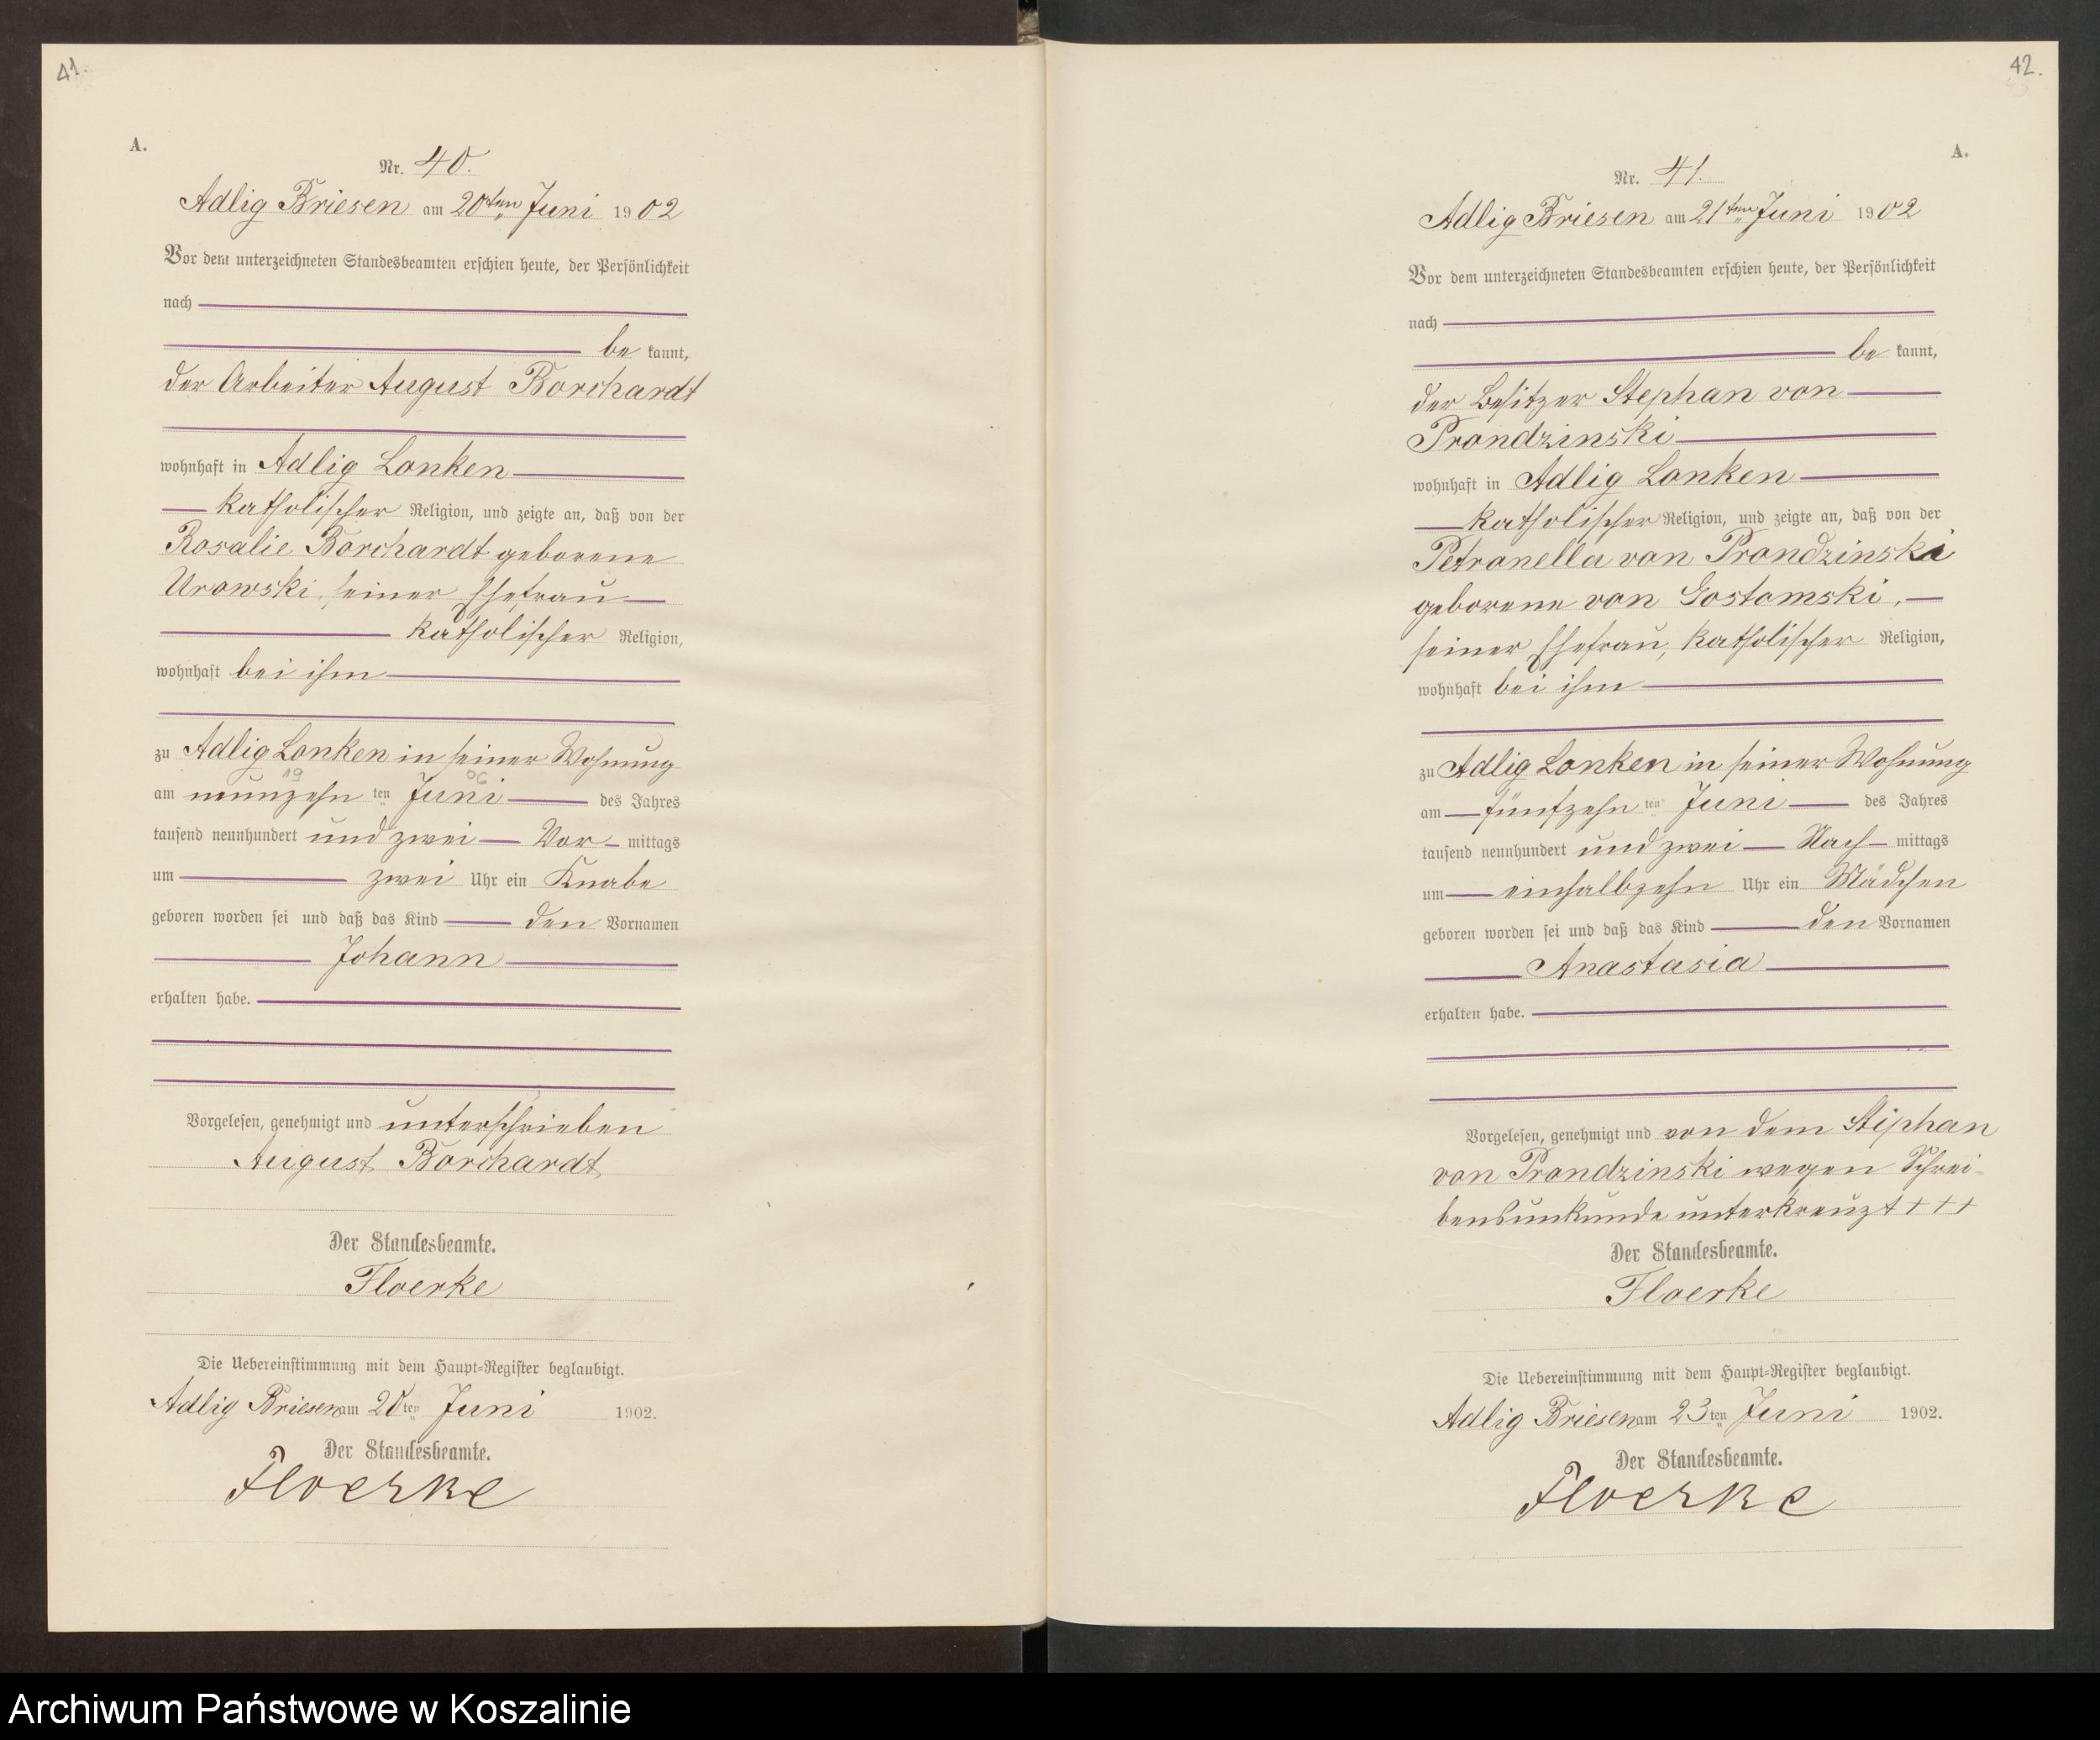 41.
A.
Nr. 40.
Adlig Briesen am 20ten Juni 1902
Vor dem unterzeichneten Standesbeamten erschien heute, der Persönlichkeit
nach
be kannt,
der Arbeiter August Borchardt
wohnhaft in Adlig Lonken
katholischer Religion, und zeigte an, daß von der
Rosalie Borchardt geborene
Urowski, seiner Ehefrau
katholischer Religion,
wohnhaft bei ihm
zu Adlig Lonken in seiner Wohnung
19 06
am neunzehn ten Juni des Jahres
tausend neunhundert und zwei Vor- mittags
um zwei Uhr ein Knabe
geboren worden sei und daß das Kind den Vornamen
Johann
erhalten habe.
Vorgelesen, genehmigt und unterschrieben
August Borchardt
Der Standesbeamte.
Floerke
Die Uebereinstimmung mit dem Haupt-Register beglaubigt.
Adlig Briesen am 20ten Juni 1902.
Der Standesbeamte.
Floerke
42.
A.
Nr. 41.
Adlig Briesen am 21ten Juni 1902
Vor dem unterzeichneten Standesbeamten erschien heute, der Persönlichkeit
nach
be kannt,
der Besitzer Stephan von
Prondzinski
wohnhaft in Adlig Lonken
katholischer Religion, und zeigte an, daß von der
Petronella von Prondzinski
geborene von Gostomski,
seiner Ehefrau, katholischer Religion,
wohnhaft bei ihm
zu Adlig Lonken in seiner Wohnung
am fünfzehn ten Juni des Jahres
tausend neunhundert und zwei Nach- mittags
um einhalbzehn Uhr ein Mädchen
geboren worden sei und daß das Kind den Vornamen
Anastasia
erhalten habe.
Vorgelesen, genehmigt und von dem Stephan
von Prondzinski wegen Schrei-
bensunkunde unterkreuzt + + +
Der Standesbeamte.
Floerke
Die Uebereinstimmung mit dem Haupt-Register beglaubigt.
Adlig Briesen am 23ten Juni 1902.
Der Standesbeamte.
Floerke
Archiwum Państwowe w Koszalinie